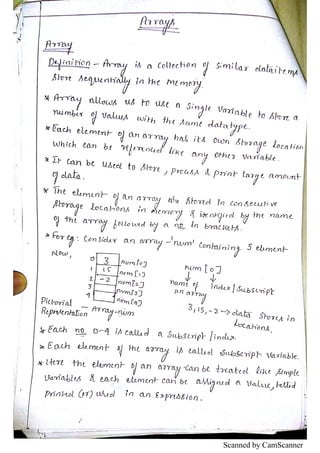 Arrays
Array
Definition - Array is a collection of similar dataitems
store sequentially in the memory.
* Array allows us to use a single variable to store a
number of values with the same datatype.
* Each element of an array has its own storage location
which can be referenced like any other variable.
* It can be used to store, process & print large amount
of data.
* The element of an array are stored in consecutive
storage locations in memory & identified by the name
of the array followed by a no. in brackets.
* For eg: Consider an array - 'num' containing 5 element
Now,
0 3 num[0]
1 15 num[1]
2 -2 num[2]
3 num[3]
4 num[4]
num [0]
name of an array
index/subscript
3, 15, -2 -> data stores in
locations.
Pictorial Representation - Array-num
* Each no 0-4 is called a subscript / index.
* Each element of the array is called subscript variable.
* Here the element of an array can be treated like simple
variables & each element can be assigned a value, tested
printed (or) used in an expression.
Scanned by CamScanner